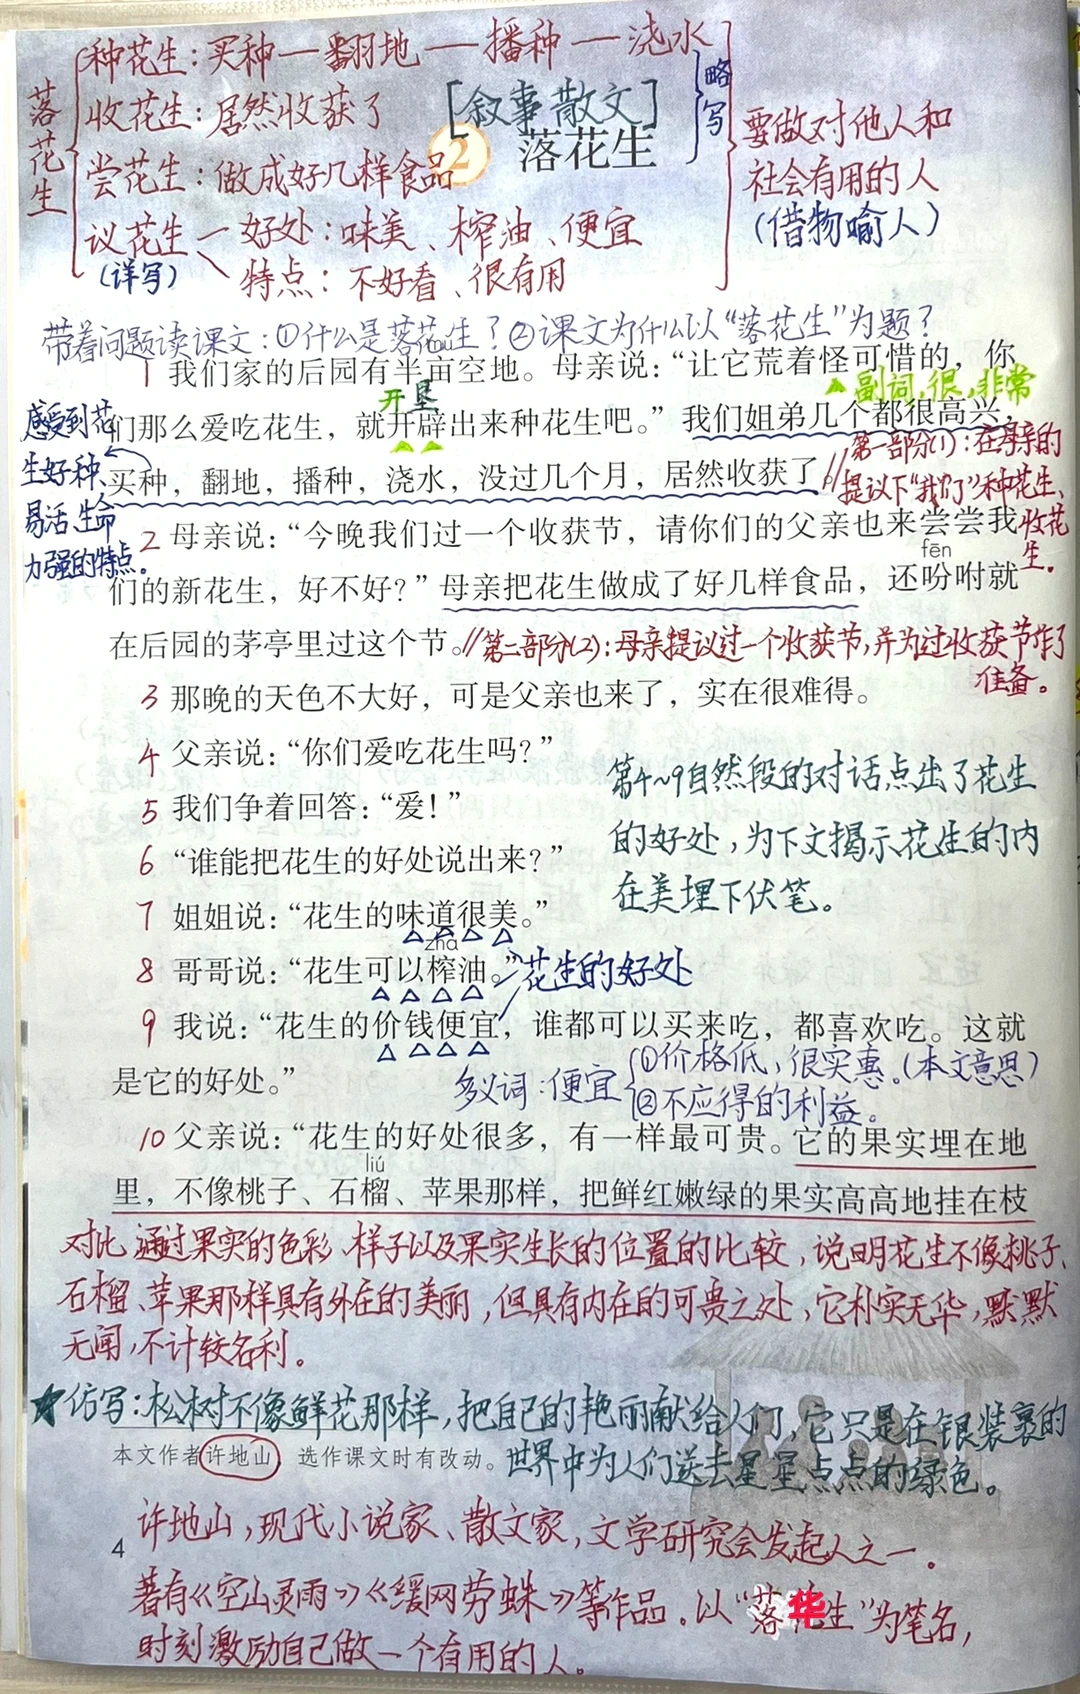 种花生：买种一翻地一播种一浇水
收花生：居然收获了
[叙事散文]
略写
落花生
2 落花生
尝花生：做成好几样食品
要做对他人和
社会有用的人
(借物喻人)
议花生一好处：味美、榨油、便宜
(详写) 特点：不好看、很有用
带着问题读课文：①什么是落花生？②课文为什么以“落花生”为题？
1 我们家的后园有半亩空地。母亲说：“让它荒着怪可惜的，你
开垦
副词,很,非常
们那么爱吃花生，就开辟出来种花生吧。”我们姐弟几个都很高兴，
买种，翻地，播种，浇水，没过几个月，居然收获了。//
感受到花
生好种、
易活,生命
力强的特点。
第一部分(1)：在母亲的
提议下“我们”种花生、
收花
生。
2 母亲说：“今晚我们过一个收获节，请你们的父亲也来尝尝我
fēn
们的新花生，好不好？”母亲把花生做成了好几样食品，还吩咐就
在后园的茅亭里过这个节。//第二部分(2)：母亲提议过一个收获节,并为过收获节作了
准备。
3 那晚的天色不大好，可是父亲也来了，实在很难得。
4 父亲说：“你们爱吃花生吗？”
5 我们争着回答：“爱！”
6 “谁能把花生的好处说出来？”
第4~9自然段的对话,点出了花生
的好处,为下文揭示花生的内
在美埋下伏笔。
7 姐姐说：“花生的味道很美。”
zhà
8 哥哥说：“花生可以榨油。”
花生的好处
9 我说：“花生的价钱便宜，谁都可以买来吃，都喜欢吃。这就
是它的好处。”
多义词：便宜
①价格低,很实惠。(本文意思)
②不应得的利益。
10 父亲说：“花生的好处很多，有一样最可贵。它的果实埋在地
liú
里，不像桃子、石榴、苹果那样，把鲜红嫩绿的果实高高地挂在枝
对比,通过果实的色彩、样子以及果实生长的位置的比较,说明花生不像桃子、
石榴、苹果那样具有外在的美丽,但具有内在的可贵之处,它朴实无华,默默
无闻,不计较名利。
★仿写：松树不像鲜花那样,把自己的艳丽献给人们,它只是在银装裹的
世界中为人们送去星星点点的绿色。
本文作者许地山，选作课文时有改动。
许地山,现代小说家、散文家,文学研究会发起人之一。
4
著有《空山灵雨》《缀网劳蛛》等作品。以“落花生”为笔名,
华
时刻激励自己做一个有用的人。